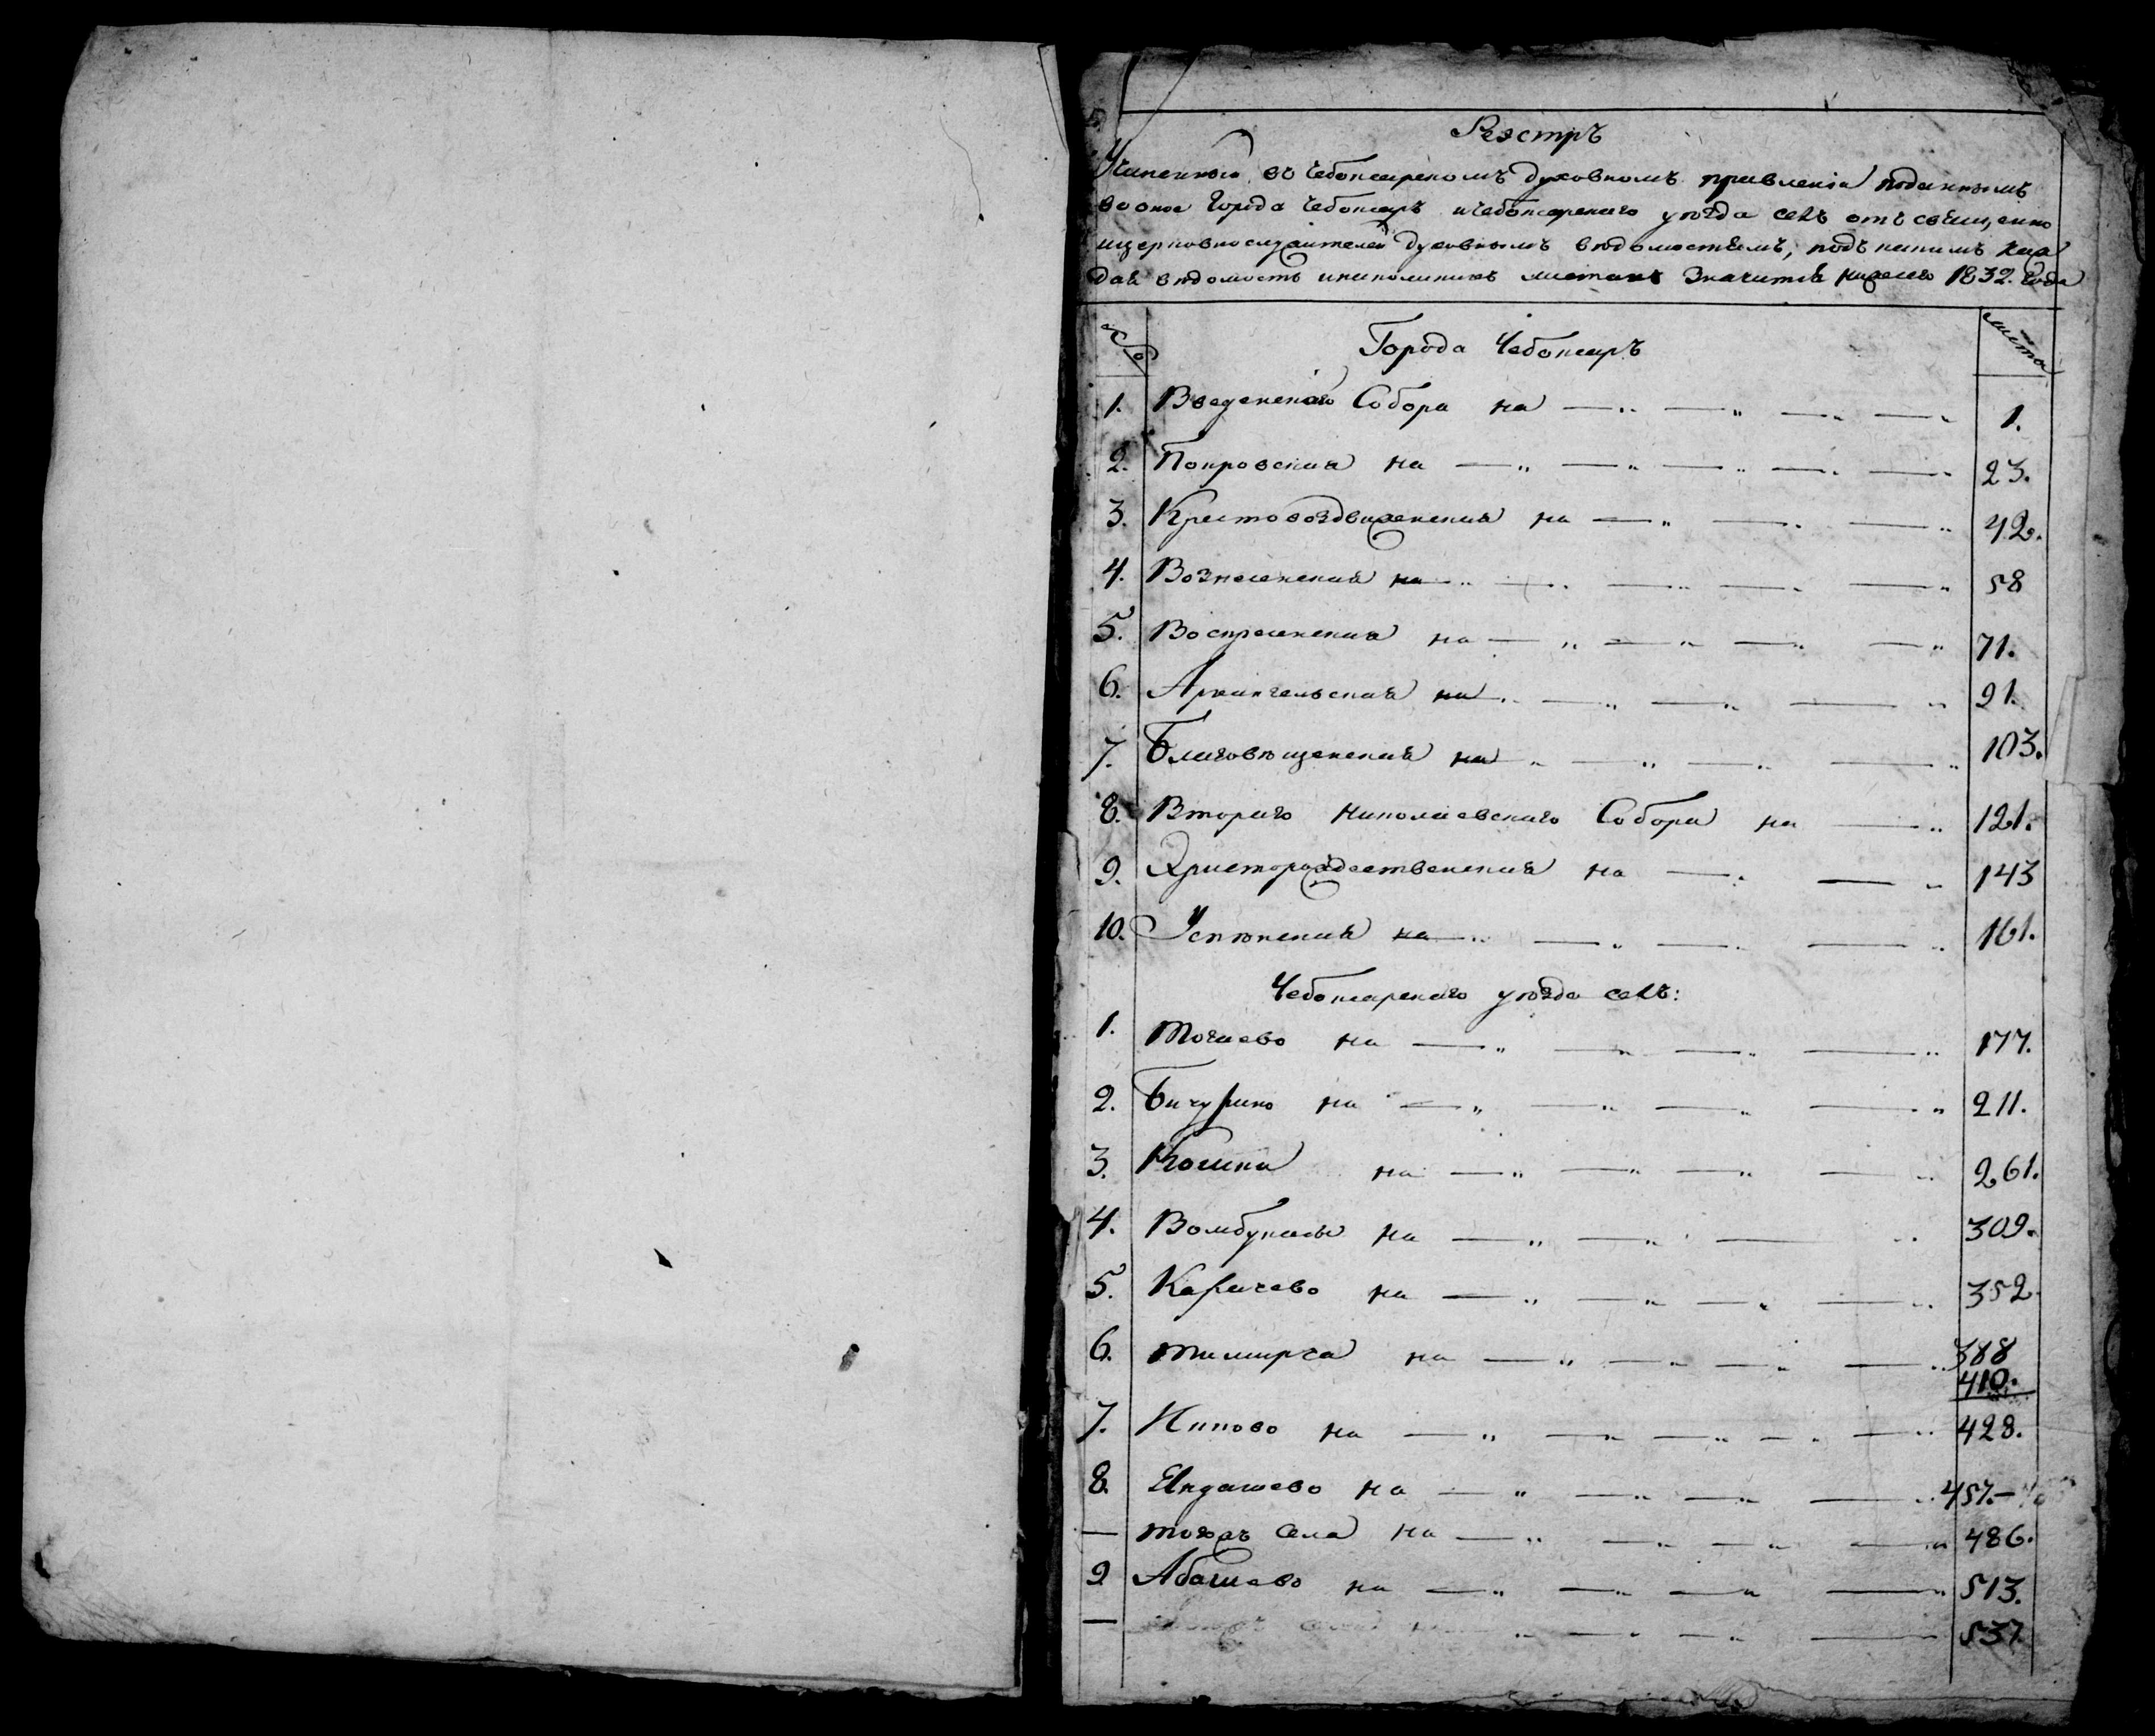 Реэстръ
Учиненный въ Чебоксарскомъ духовномъ правленiи поданнымъ
во оное Города Чебоксаръ и Чебоксарскаго уѣзда селъ отъ священно
ицерковнослужителей духовнымъ вѣдомостямъ, подъ какимъ каж
дая вѣдомость инаколикихъ листахъ значится ниже сего 1832. года
Города Чебоксаръ
листы
1. Введенскаго Собора на 1.
2. Покровская на 23.
3. Крестовоздвиженская на 42.
4. Вознесенская на 58
5. Воскресенская на 71.
6. Архангельская на 91.
7. Благовѣщенская на 103.
8. Втораго Николаевскаго Собора на 121.
9. Христорождественская на 143
10. Успѣнская на 161.
Чебоксарскаго уѣзда селъ:
1. Тогаево на 177.
2. Бичурино на 211.
3. Кошки на 261.
4. Вомбукасы на 309.
5. Карачево на 352.
6. Тимирча на 388
410.
7. Липово на 428.
8. Яндашево на 457.
— тожъ Села на 486.
9 Абашево на 513.
— на 537.